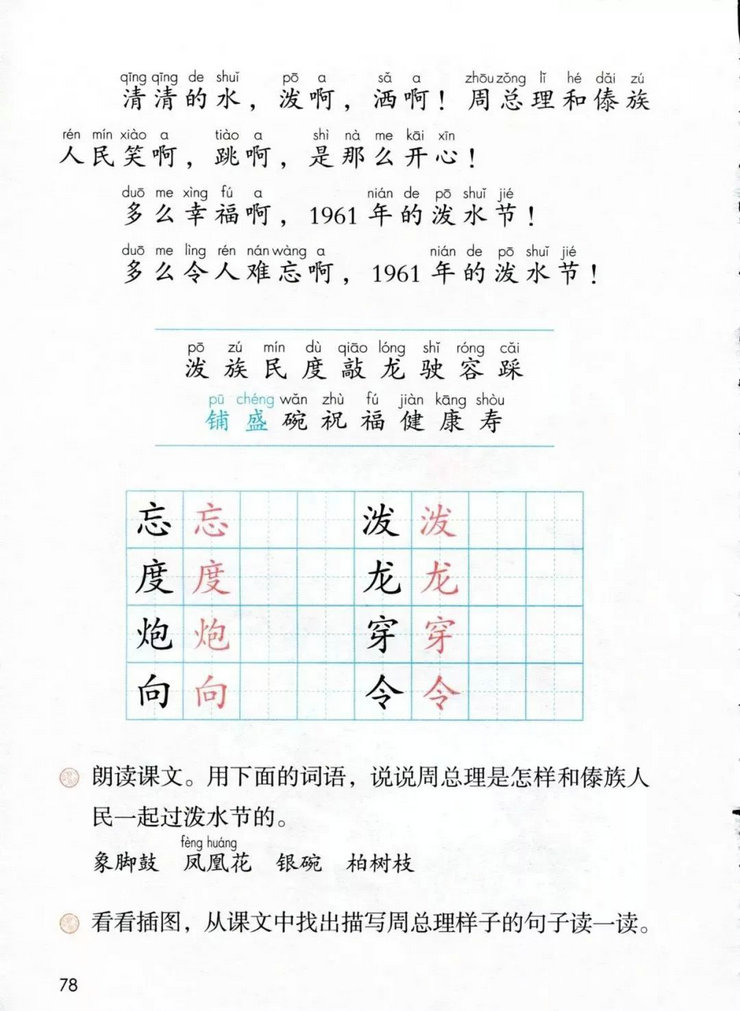 qīng qīng de shuǐ pō a sǎ a zhōu zǒng lǐ hé dǎi zú
清清的水，泼啊，洒啊！周总理和傣族
rén mín xiào a tiào a shì nà me kāi xīn
人民笑啊，跳啊，是那么开心！
duō me xìng fú a nián de pō shuǐ jié
多么幸福啊，1961年的泼水节！
duō me lìng rén nán wàng a nián de pō shuǐ jié
多么令人难忘啊，1961年的泼水节！
pō zú mín dù qiāo lóng shǐ róng cǎi
泼族民度敲龙驶容踩
pū chéng wǎn zhù fú jiàn kāng shòu
铺盛碗祝福健康寿
忘 忘 泼 泼
度 度 龙 龙
炮 炮 穿 穿
向 向 令 令
朗读课文。用下面的词语，说说周总理是怎样和傣族人
民一起过泼水节的。
fèng huáng
象脚鼓 凤凰花 银碗 柏树枝
看看插图，从课文中找出描写周总理样子的句子读一读。
78